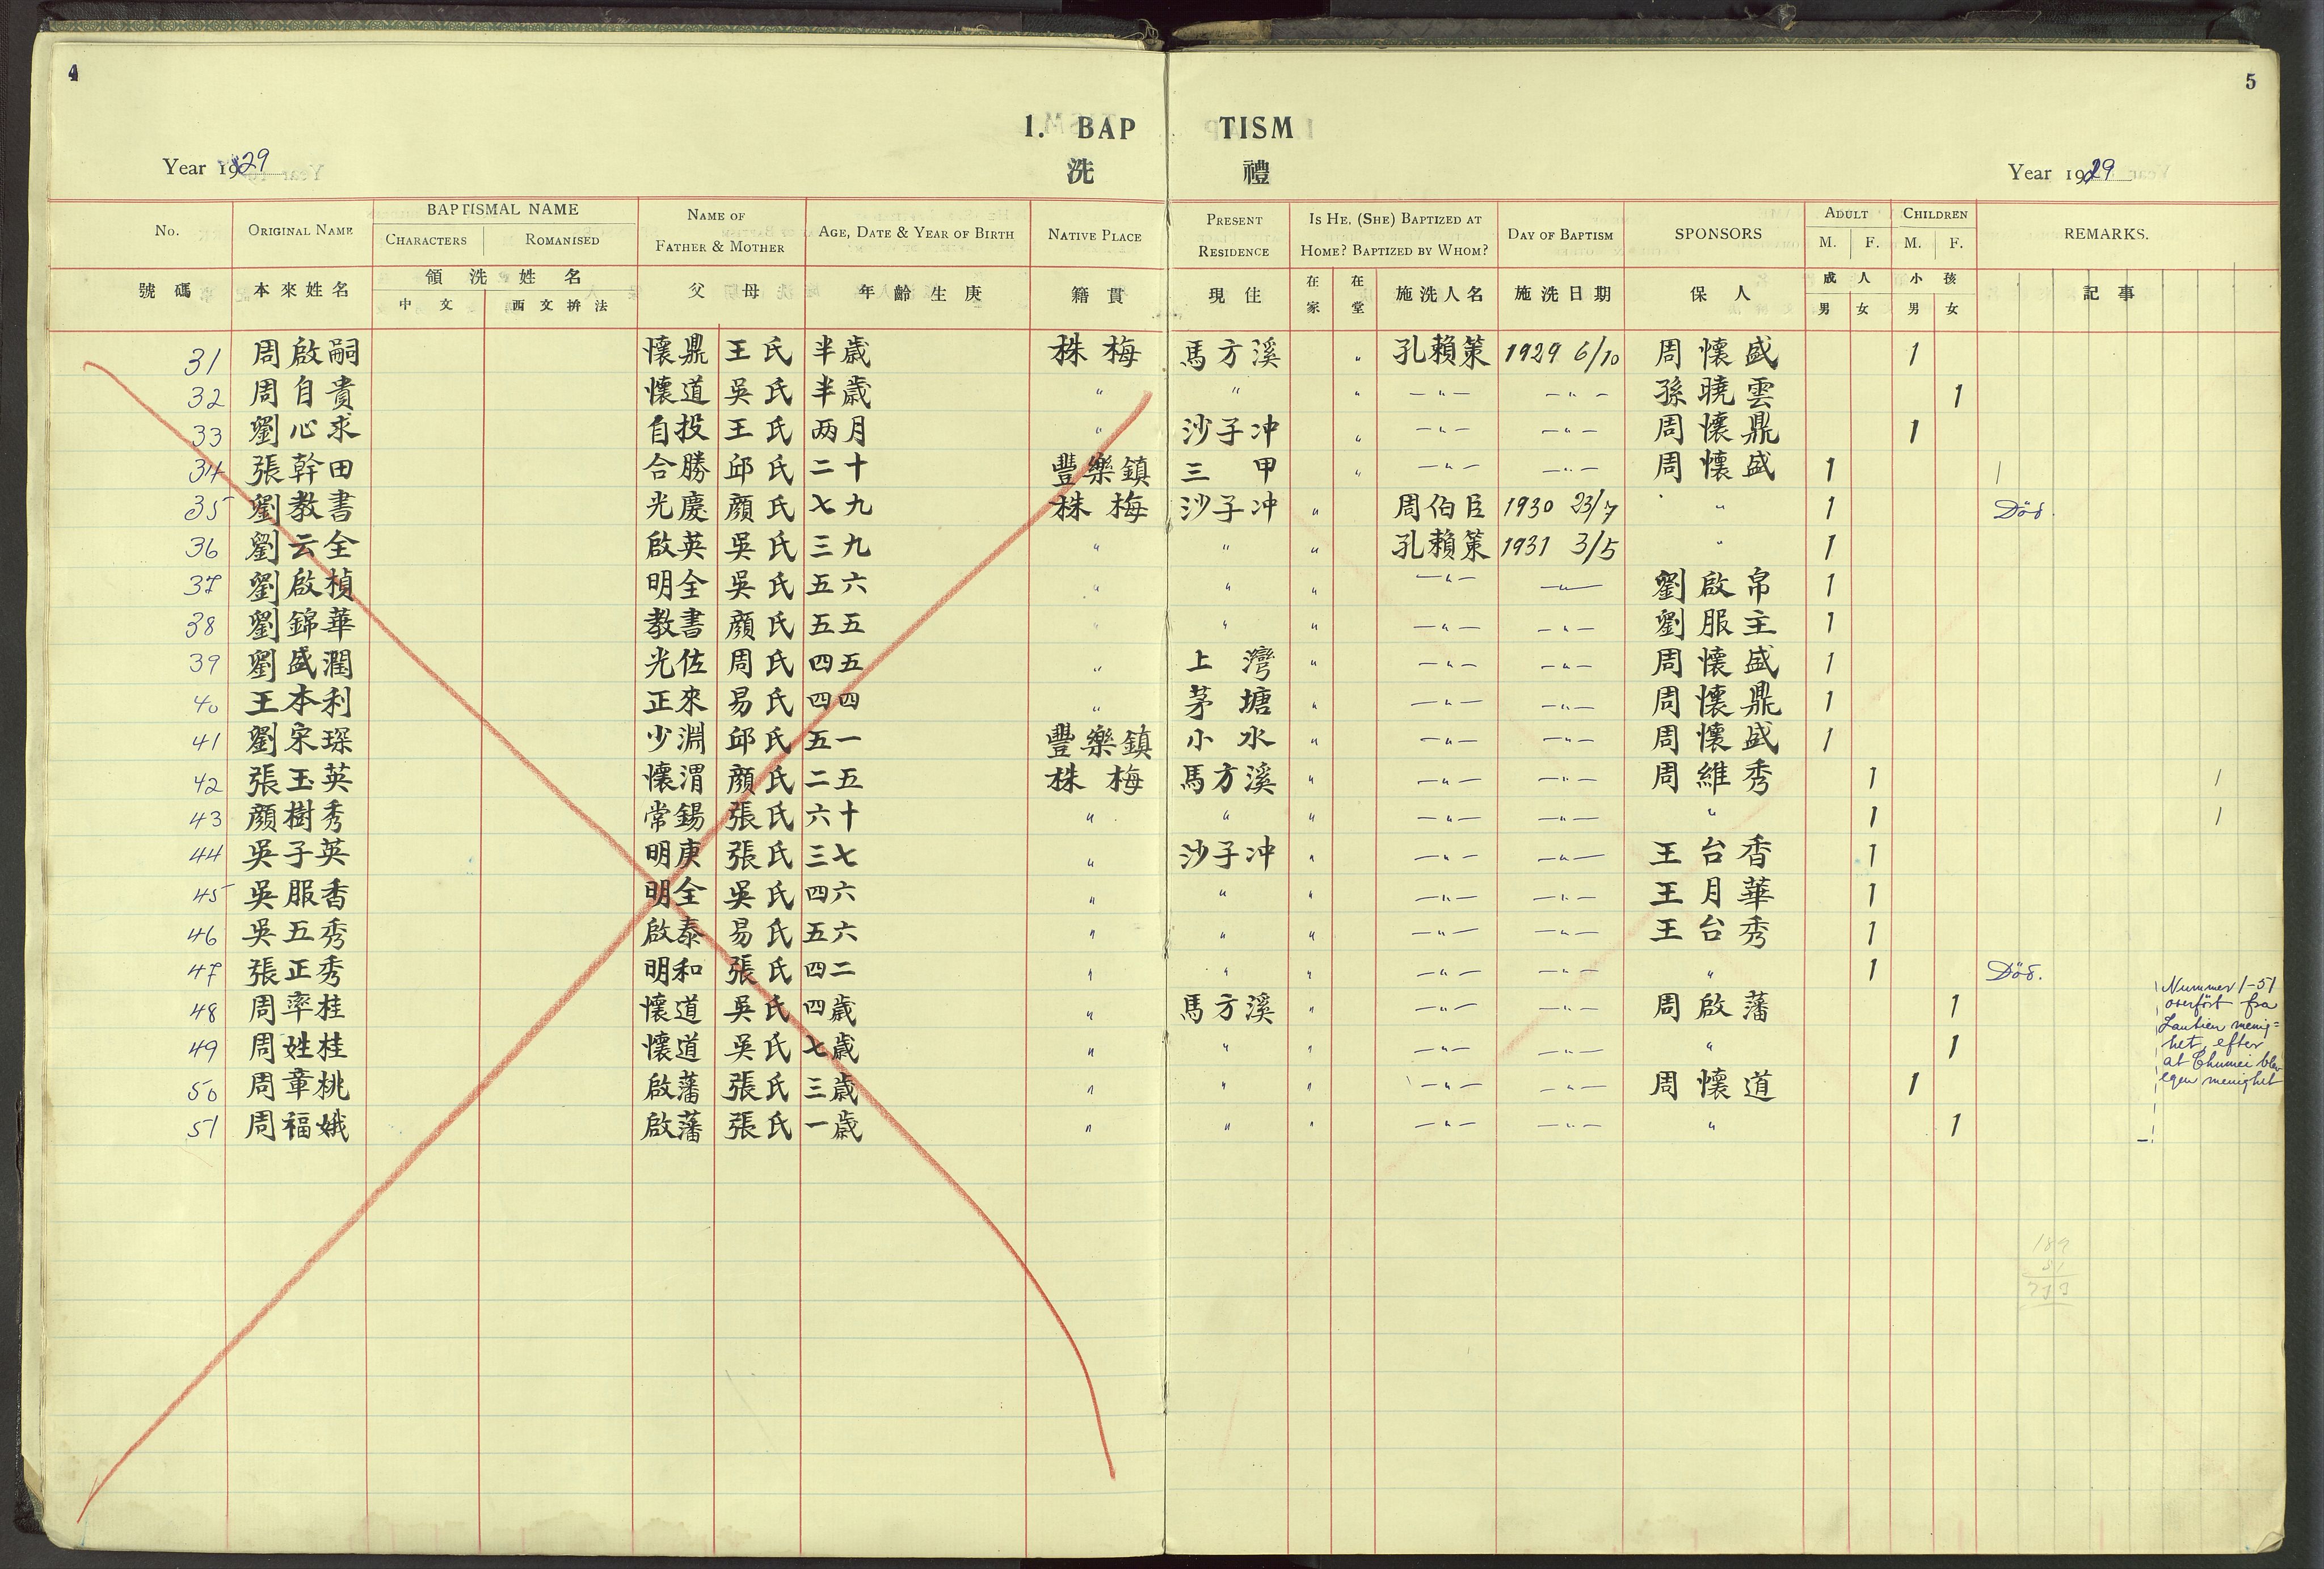 4
5
1. BAP TISM
洗 禮
Year 1929
Year 1929
No. ORIGINAL NAME BAPTISMAL NAME NAME OF FATHER & MOTHER AGE, DATE & YEAR OF BIRTH NATIVE PLACE PRESENT RESIDENCE IS HE, (SHE) BAPTIZED AT HOME? BAPTIZED BY WHOM? DAY OF BAPTISM SPONSORS ADULT CHILDREN REMARKS.
CHARACTERS ROMANISED M. F. M. F.
號碼 本來姓名 領洗姓名 父母 年齡生庚 籍貫 現住 在家 在堂 施洗人名 施洗日期 保人 成人 小孩 記事
中文 西文拚法 男 女 男 女
31 周啟嗣 懷鼎 王氏 半歲 株梅 馬方溪 " 孔賴策 1929 6/10 周懷盛 1
32 周自貴 懷道 吳氏 半歲 " " " —"— —"— 孫曉雲 1
33 劉心求 自投 王氏 两月 " 沙子冲 " —"— —"— 周懷鼎 1
34 張幹田 合勝 邱氏 二十 豐樂鎮 三甲 " —"— —"— 周懷盛 1 |
35 劉教書 光慶 顔氏 七九 株梅 沙子冲 " 周伯臣 1930 23/7 " 1 Död.
36 劉云全 啟英 吳氏 三九 " " " 孔賴策 1931 3/5 " 1
37 劉啟楨 明全 吳氏 五六 " " " —"— — 劉啟帛 1
38 劉錦華 教書 顔氏 五五 " " " —"— —"— 劉服主 1
39 劉盛潤 光佐 周氏 四五 " 上灣 " —"— —"— 周懷盛 1
40 王本利 正來 易氏 四四 " 茅塘 " —"— —"— 周懷鼎 1
41 劉宋琛 少淵 邱氏 五一 豐樂鎮 小水 " —"— —"— 周懷盛 1
42 張玉英 懷渭 顔氏 二五 株梅 馬方溪 " —"— —"— 周維秀 1 |
43 顔樹秀 常錫 張氏 六十 " " " —"— —"— " 1 |
44 吳子英 明庚 張氏 三七 " 沙子冲 " —"— —"— 王台香 1
45 吳服香 明全 吳氏 四六 " " " —"— —"— 王月華 1
46 吳五秀 啟泰 易氏 五六 " " " —"— —"— 王台秀 1
47 張正秀 明和 張氏 四二 " " " —"— —"— " 1 Död.
48 周率桂 懷道 吳氏 四歲 " 馬方溪 " —"— —"— 周啟藩 1
49 周姓桂 懷道 吳氏 七歲 " " " —"— —"— " 1
50 周章桃 啟藩 張氏 三歲 " " " —"— —"— 周懷道 1
51 周福娥 啟藩 張氏 一歲 " " " —"— —"— " 1
Nummer 1-51
overført fra
menig=
het, efter
at blev
egen menighet